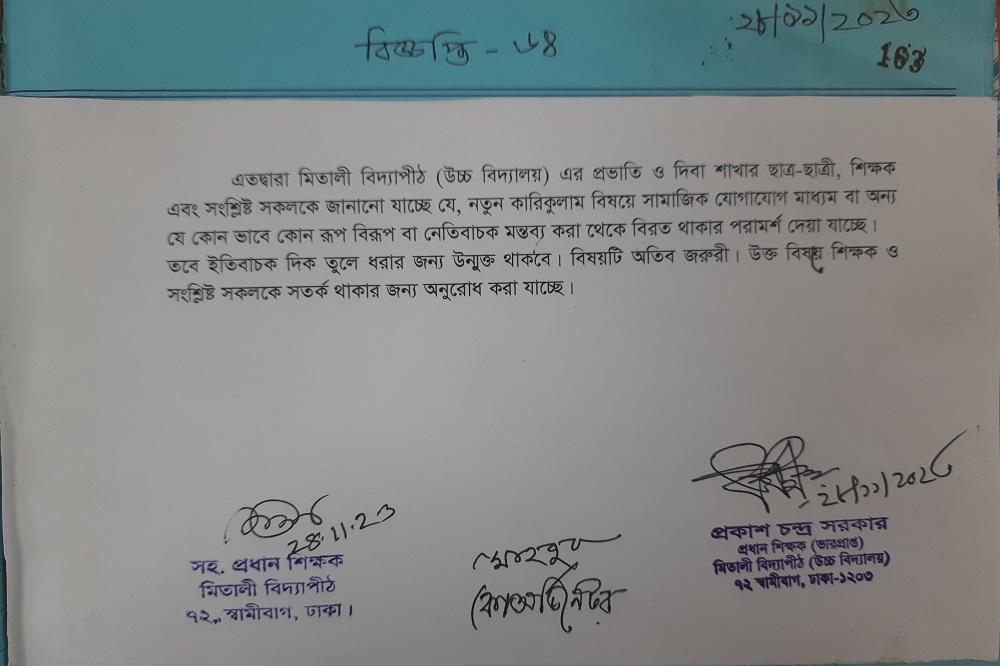 ২৮/১১/২০২৩
বিজ্ঞপ্তি - ৬৪
163
এতদ্বারা মিতালী বিদ্যাপীঠ (উচ্চ বিদ্যালয়) এর প্রভাতি ও দিবা শাখার ছাত্র-ছাত্রী, শিক্ষক
এবং সংশ্লিষ্ট সকলকে জানানো যাচ্ছে যে, নতুন কারিকুলাম বিষয়ে সামাজিক যোগাযোগ মাধ্যম বা অন্য
যে কোন ভাবে কোন রূপ বিরূপ বা নেতিবাচক মন্তব্য করা থেকে বিরত থাকার পরামর্শ দেয়া যাচ্ছে।
তবে ইতিবাচক দিক তুলে ধরার জন্য উন্মুক্ত থাকবে। বিষয়টি অতিব জরুরী। উক্ত বিষয়ে শিক্ষক ও
সংশ্লিষ্ট সকলকে সতর্ক থাকার জন্য অনুরোধ করা যাচ্ছে।
28.11.23
সহ. প্রধান শিক্ষক
মিতালী বিদ্যাপীঠ
৭২, স্বামীবাগ, ঢাকা।
কোঅর্ডিনেটর
২৮/১১/২০২৩
প্রকাশ চন্দ্র সরকার
প্রধান শিক্ষক (ভারপ্রাপ্ত)
মিতালী বিদ্যাপীঠ (উচ্চ বিদ্যালয়)
৭২ স্বামীবাগ, ঢাকা-১২০৩